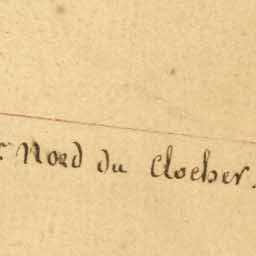 r Nord du Clocher.